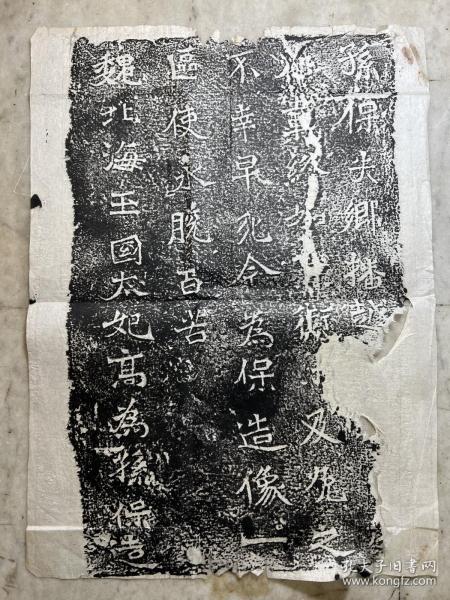 孫保失鄉播
終又之
不幸早死今為保造像一
區使永脱百苦
魏北海王國太妃高為孫保造
孔夫子旧书网
www.kongfz.com